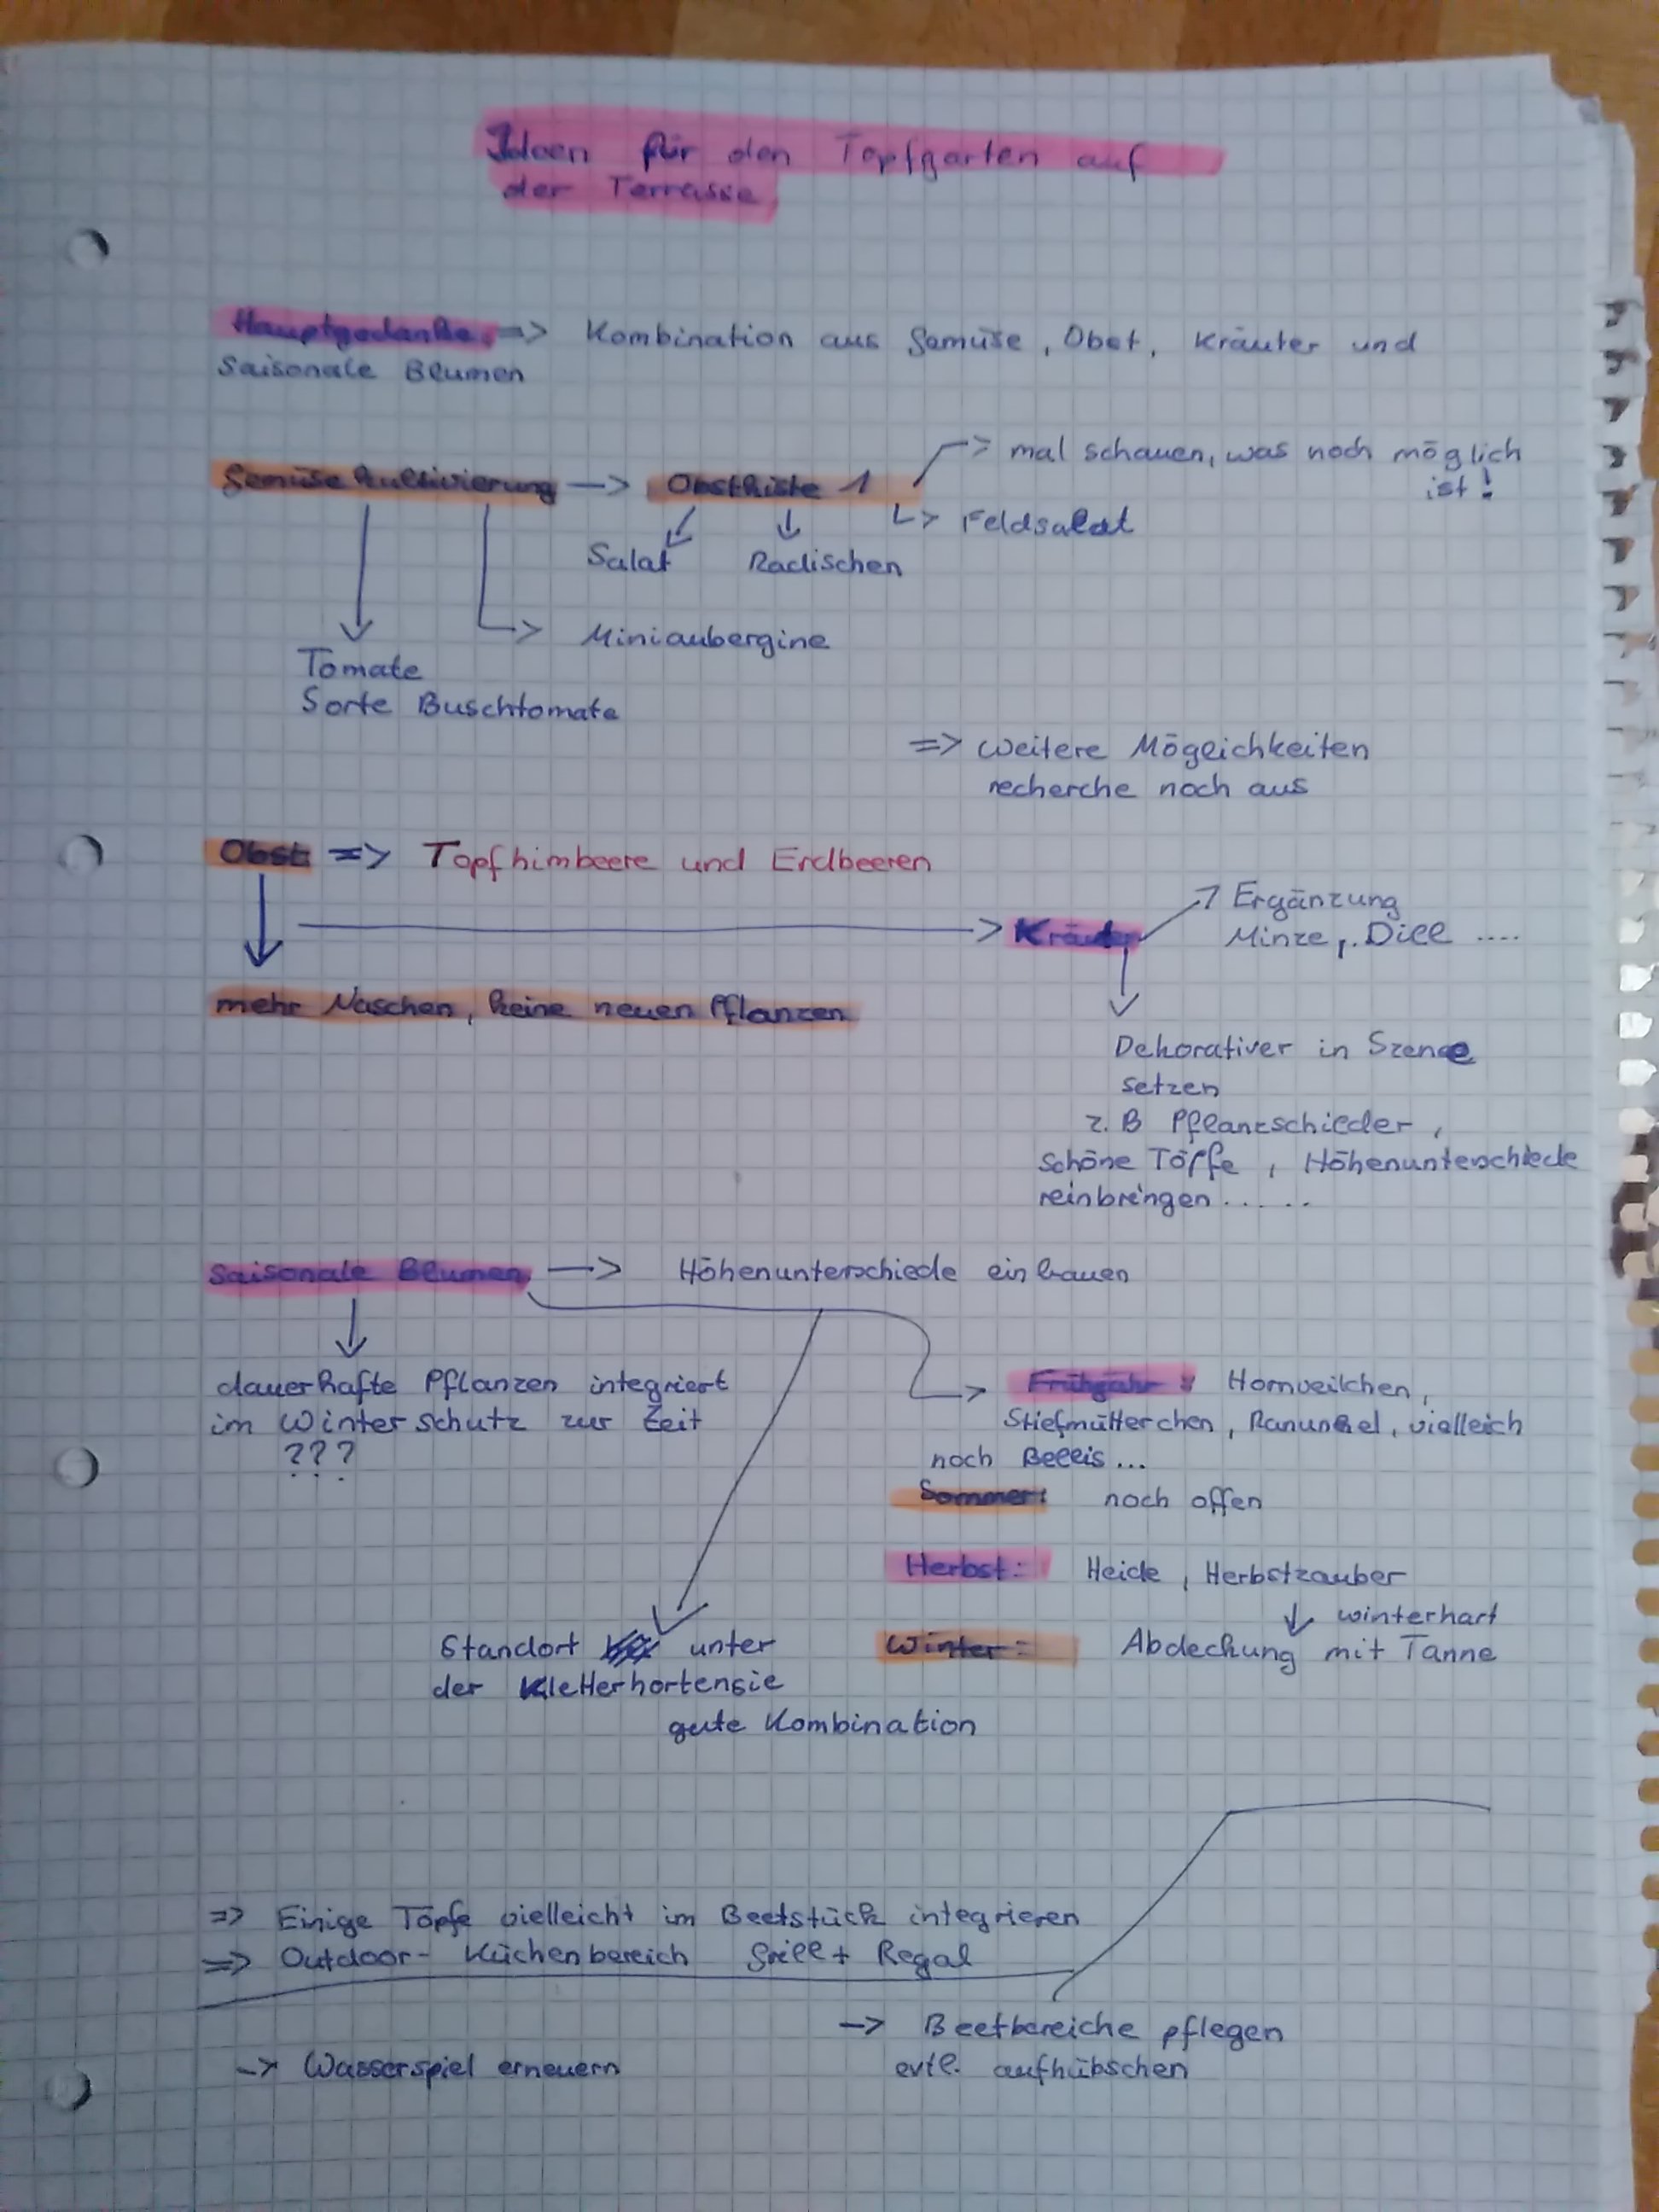 Ideen für den Topfgarten auf
der Terrasse
Hauptgedanke => Kombination aus Gemüse, Obst, Kräuter und
Saisonale Blumen
Gemüse Kultivierung -> Obstkiste 1 -> mal schauen, was noch möglich
ist!
-> Feldsalat
Salat Radischen
-> Miniaubergine
Tomate
Sorte Buschtomate
=> weitere Möglichkeiten
recherche noch aus
Obst => Topfhimbeere und Erdbeeren
-> Kräuter -> Ergänzung
Minze, Dill ....
mehr Naschen, keine neuen Pflanzen
Dekorativer in Szene
setzen
z.B Pflanzschilder,
schöne Töpfe, Höhenunterschiede
reinbringen ......
Saisonale Blumen -> Höhenunterschiede einbauen
dauerhafte Pflanzen integriert
im Winterschutz zur Zeit
???
-> Frühjahr: Hornveilchen,
Stiefmütterchen, Ranunkel, vielleich
noch Bellis ...
Sommer: noch offen
Herbst: Heide, Herbstzauber
winterhart
Winter: Abdeckung mit Tanne
Standort unter
der Kletterhortensie
gute Kombination
=> Einige Töpfe vielleicht im Beetstück integrieren
=> Outdoor- Küchenbereich Grill + Regal
-> Beetbereiche pflegen
evtl. aufhübschen
-> Wasserspiel erneuern